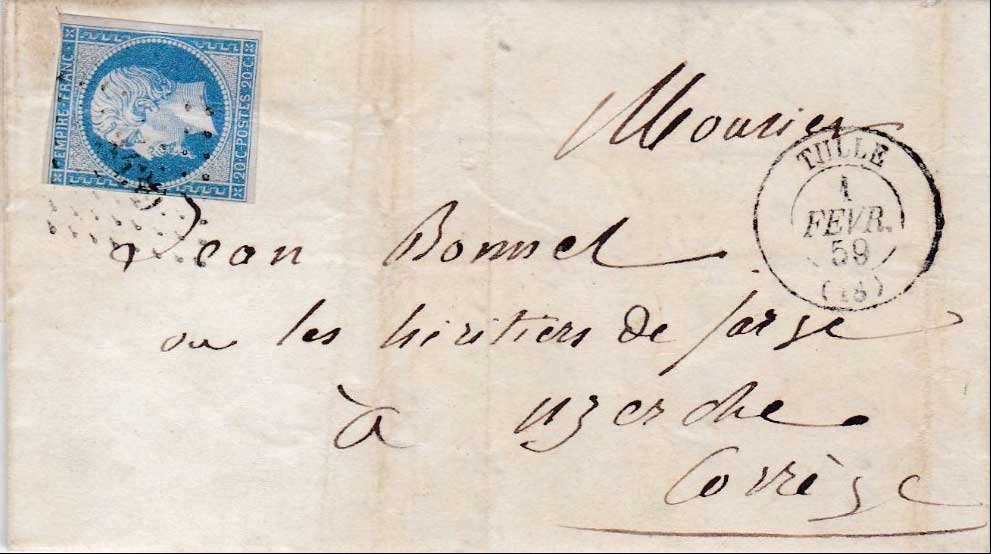 EMPIRE FRANC.
20 C. POSTES 20 C.
Monsieur
TULLE
1
FEVR.
59
(18)
Jean Bonnel
ou les héritiers de farge
à uzerche
Corrèze